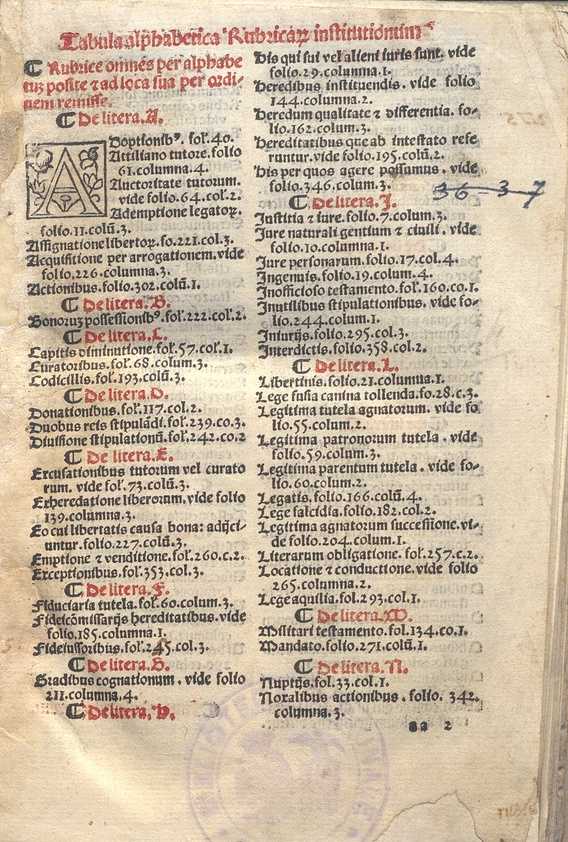 Tabula alphabetica Rubricaꝝ institutionum
¶ Rubrice omnes per alphabe
tuȝ posite ⁊ ad loca sua per ordi-
nem remisse.
¶ De litera. A.
Adoptionibꝰ. fol. 40.
Attiliano tutore. folio
61. columna. 4.
Auctoritate tutorum.
vide folio. 64. col. 2.
Ademptione legatoꝝ.
folio. 11. colū. 3.
Assignatione libertoꝝ. fo. 221. col. 3.
Acquisitione per arrogationem. vide
folio. 226. columna. 3.
Actionibus. folio. 302. colū. 1.
¶ De litera. B.
Bonoruȝ possessionibꝰ. fol. 222. col. 2.
¶ De litera. C.
Capitis diminutione. fol. 57. col. 1.
Curatoribus. fol. 68. colum. 3.
Codicillis. fol. 193. colū. 3.
¶ De litera. D.
Donationibus. fol. 117. col. 2.
Duobus reis stipulādi. fol. 239. co. 3.
Diuisione stipulationū. fol. 242. co. 2
¶ De litera. E.
Excusationibus tutorum vel curato
rum. vide fol. 73. colū. 3.
Exheredatione liberorum. vide folio
139. columna. 3.
Eo cui libertatis causa bona: adijci-
untur. folio. 227. colū. 3.
Emptione ⁊ venditione. fol. 260. c. 2.
Exceptionibus. fol. 353. col. 3.
¶ De litera. F.
Fiduciaria tutela. fol. 60. colum. 3.
Fideicōmissarijs hereditatibus. vide
folio. 185. columna. 1.
Fideiussoribus. fol. 245. col. 3.
¶ De litera. G.
Gradibus cognationum. vide folio
211. columna. 4.
¶ De litera. H.
His qui sui vel alieni iuris sunt. vide
folio. 29. columna. 1.
Heredibus instituendis. vide folio
144. columna. 2.
Heredum qualitate ⁊ differentia. fo-
lio. 162. colum. 3.
Hereditatibus que ab intestato refe
runtur. vide folio. 195. colū. 2.
His per quos agere possumus. vide
folio. 346. colum. 3.
¶ De litera. I.
Iustitia ⁊ iure. folio. 7. colum. 3.
Iure naturali gentium ⁊ ciuili. vide
folio. 10. columna. 1.
Iure personarum. folio. 17. col. 4.
Ingenuis. folio. 19. colum. 4.
Inofficioso testamento. fol. 160. co. 1.
Inutilibus stipulationibus. vide fo-
lio. 244. colum. 1.
Iniurijs. folio. 295. col. 3.
Interdictis. folio. 358. col. 2.
¶ De litera. L.
Libertinis. folio. 21. columna. 1.
Lege fusia canina tollenda. fo. 28. c. 3.
Legitima tutela agnatorum. vide fo
lio. 55. colum. 2.
Legitima patronorum tutela. vide
folio. 59. colum. 3.
Legitima parentum tutela. vide fo-
lio. 60. colum. 2.
Legatis. folio. 166. colū. 4.
Lege falcidia. folio. 182. col. 2.
Legitima agnatorum successione. vi-
de folio. 204. colum. 1.
Literarum obligatione. fol. 257. c. 2.
Locatione ⁊ conductione. vide folio
265. columna. 2.
Lege aquilia. fol. 293. col. 1.
¶ De litera. M.
Militari testamento. fol. 134. co. 1.
Mandato. folio. 271. colū. 1.
¶ De litera. N.
Nuptijs. fol. 33. col. 1.
Noxalibus actionibus. folio. 342.
columna. 3.
aa 2
36 3 7